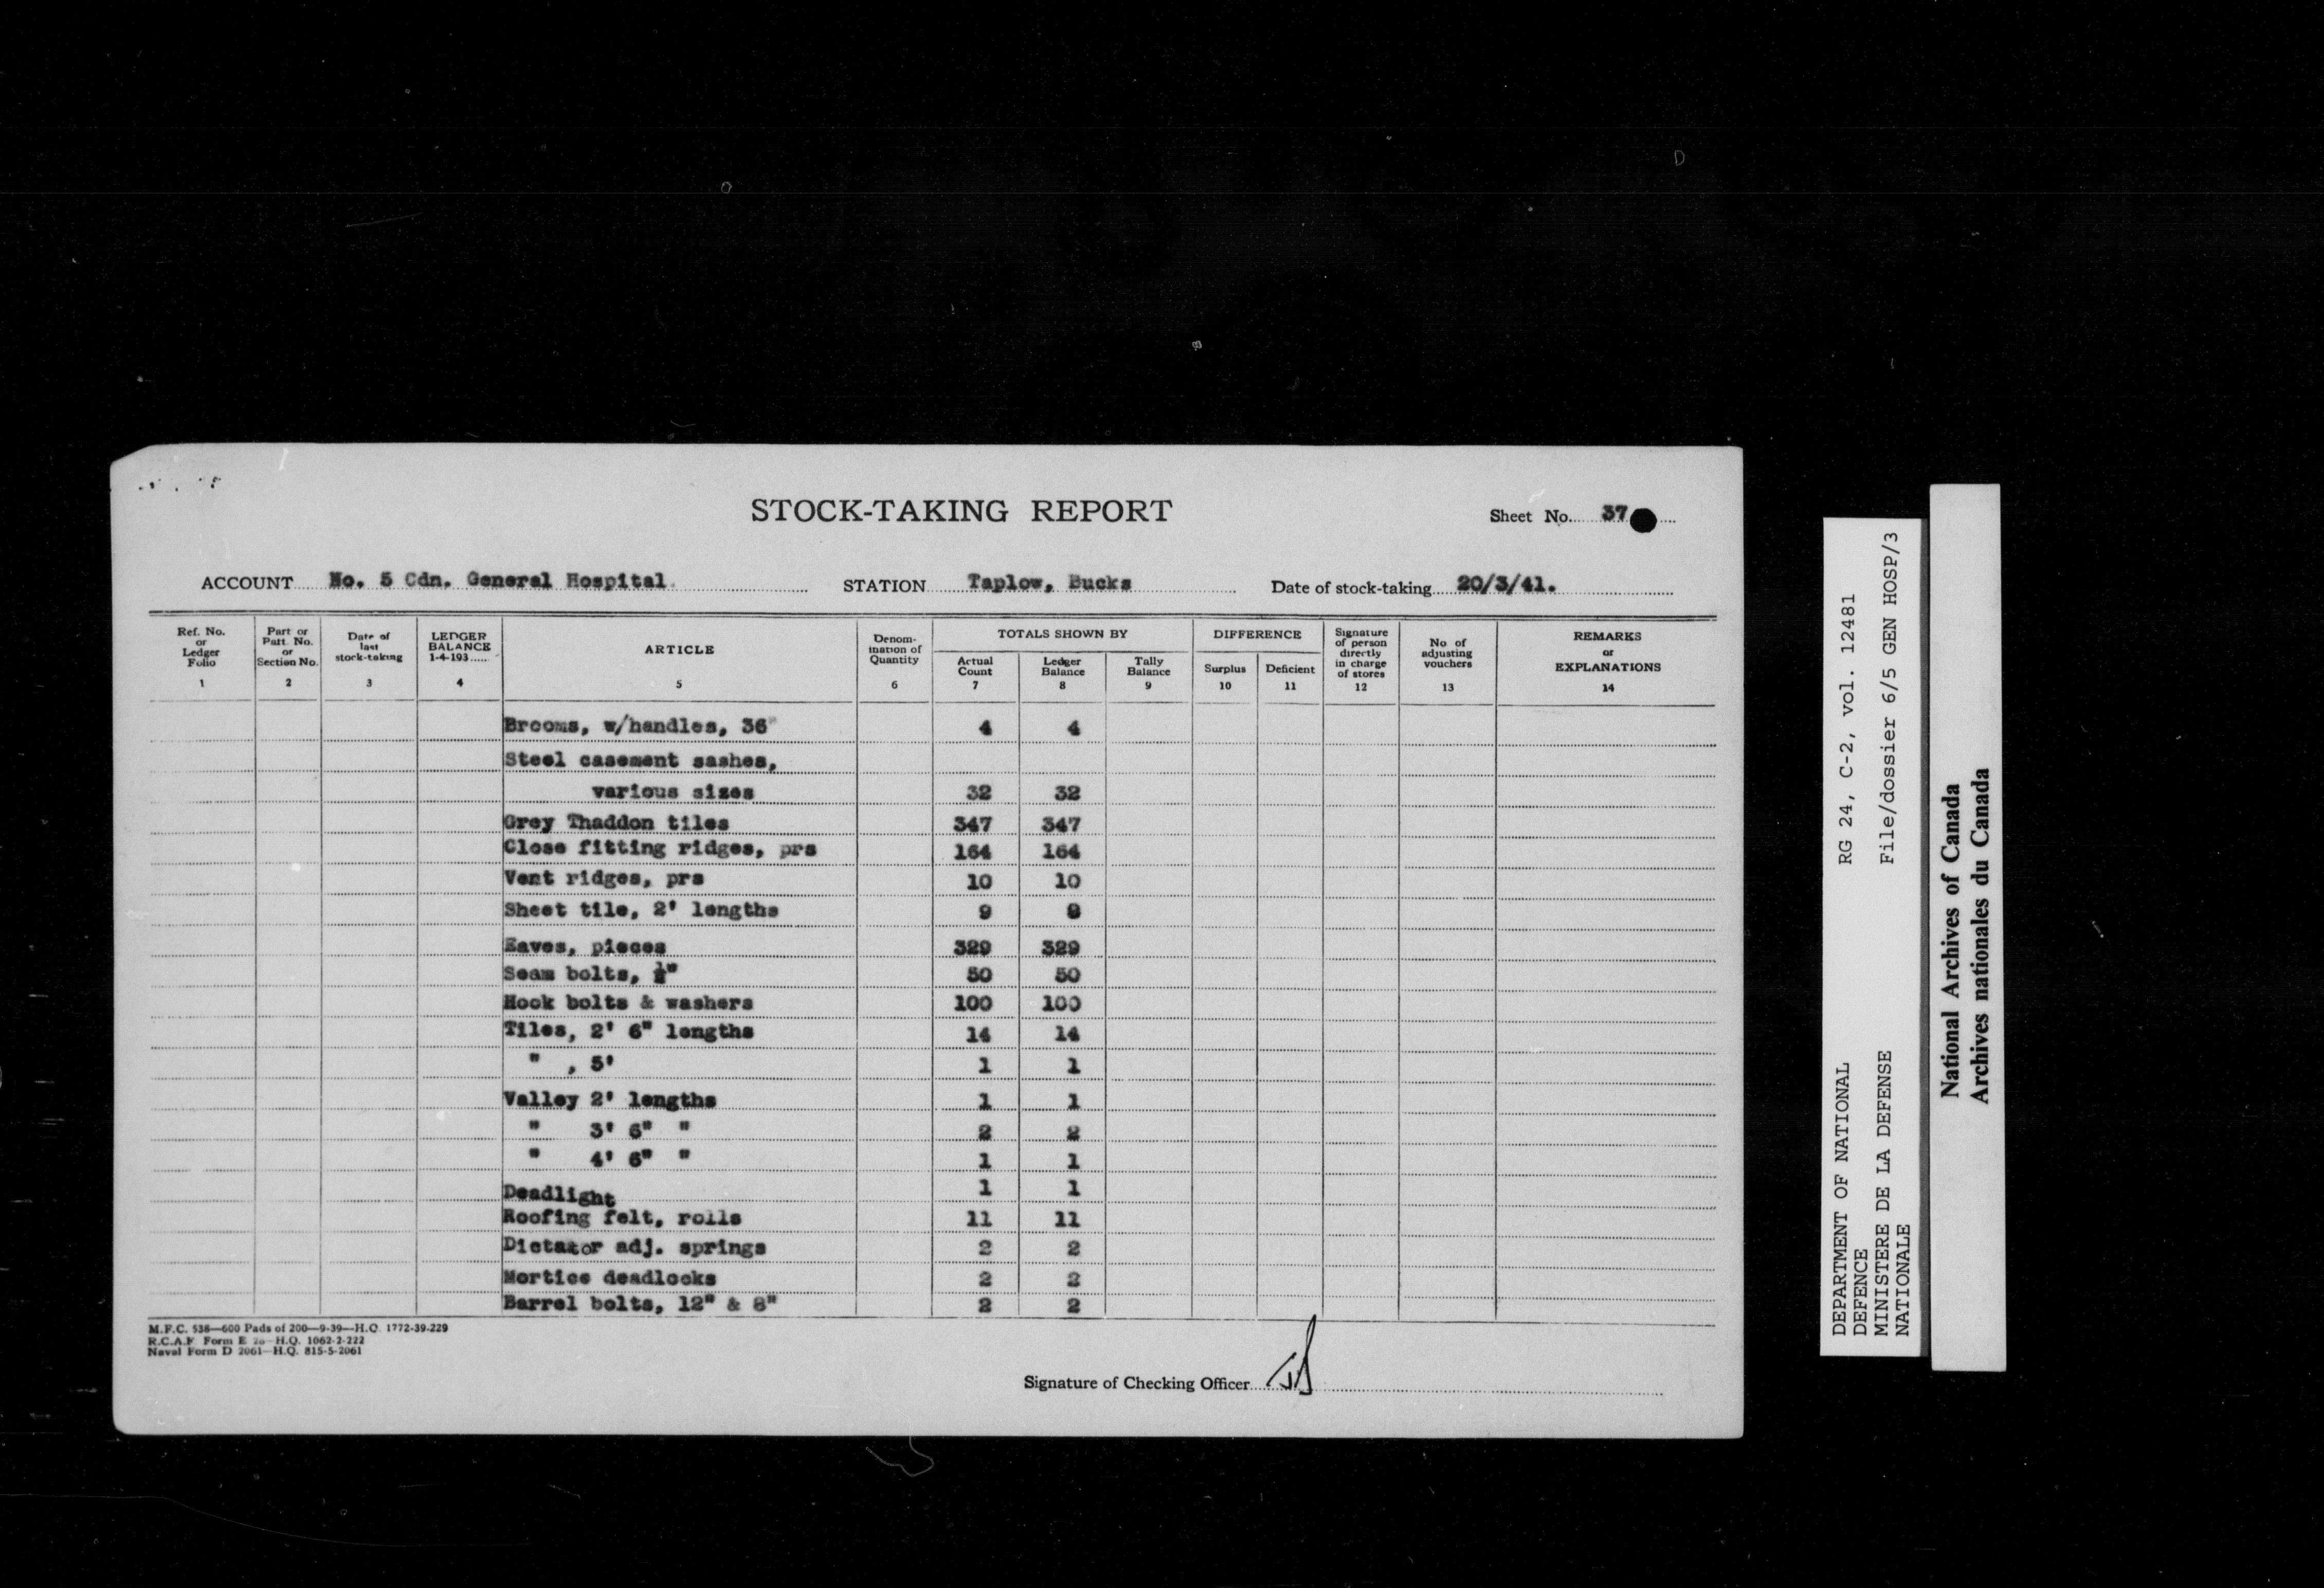 STOCK-TAKING REPORT
Sheet No. 37
ACCOUNT No. 5 Cdn. General Hospital STATION Taplow, Bucks Date of stock-taking 20/3/41.
Ref. No. or Ledger Folio 1
Part or Patt. No. or Section No. 2
Date of last stock-taking 3
LEDGER BALANCE 1-4-193...... 4
ARTICLE 5
Denomination of Quantity 6
TOTALS SHOWN BY
Actual Count 7
Ledger Balance 8
Tally Balance 9
DIFFERENCE
Surplus 10
Deficient 11
Signature of person directly in charge of stores 12
No of adjusting vouchers 13
REMARKS or EXPLANATIONS 14
Brooms, w/handles, 36" 4 4
Steel casement sashes,
various sizes 32 32
Grey Thaddon tiles 347 347
Close fitting ridges, prs 164 164
Vent ridges, prs 10 10
Sheet tile, 2' lengths 9 9
Eaves, pieces 329 329
Seam bolts, 50 50
Hook bolts & washers 100 100
Tiles, 2' 6" lengths 14 14
" , 5' 1 1
Valley 2' lengths 1 1
" 3' 6" " 2 2
" 4' 6" " 1 1
Deadlight 1 1
Roofing felt, rolls 11 11
Dictator adj. springs 2 2
Mortice deadlocks 2 2
Barrel bolts, 12" & 8" 2 2
M.F.C. 538—600 Pads of 200—9-39—H.Q. 1772-39-229
R.C.A.F. Form E H.Q. 1062-2-222
Naval Form D 2061—H.Q. 815-5-2061
Signature of Checking Officer
RG 24, C-2, vol. 12481
File/dossier 6/5 GEN HOSP/3
DEPARTMENT OF NATIONAL
DEFENCE
MINISTERE DE LA DEFENSE
NATIONALE
National Archives of Canada
Archives nationales du Canada